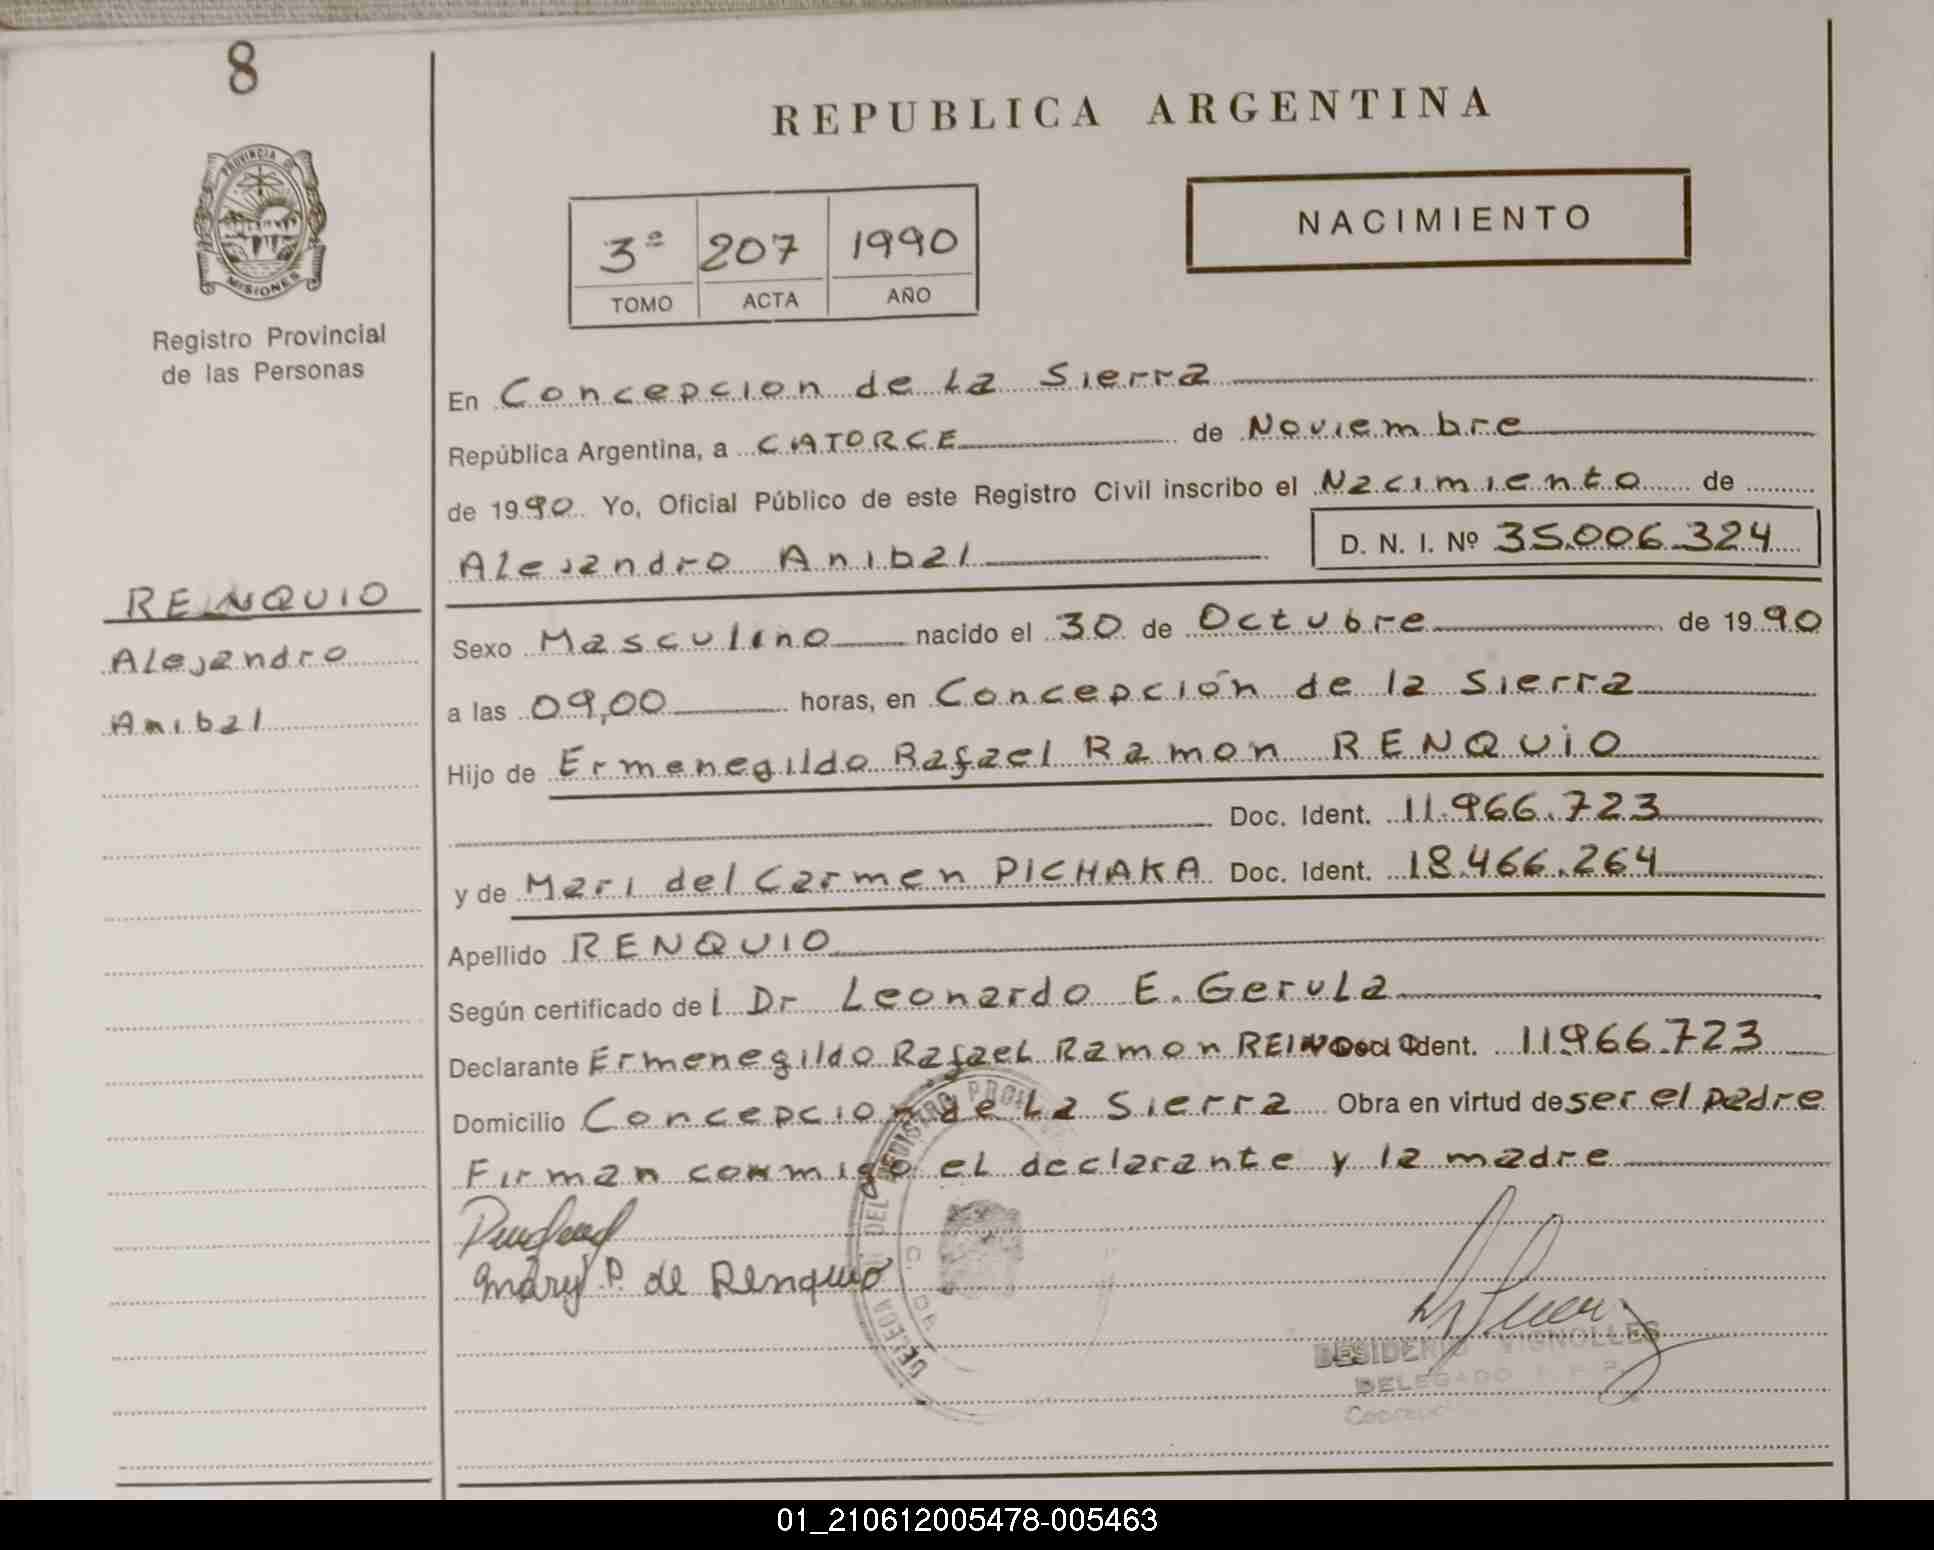 8
REPUBLICA ARGENTINA
PROVINCIA DE
MISIONES
Registro Provincial
de las Personas
3º 207 1990
TOMO ACTA AÑO
NACIMIENTO
En Concepcion de La Sierra
República Argentina, a CATORCE de Noviembre
de 1990 Yo, Oficial Público de este Registro Civil inscribo el Nacimiento de
Alejandro Anibal D. N. I. Nº 35.006.324
REINQUIO
Alejandro
Anibal
Sexo Masculino nacido el 30 de Octubre de 1990
a las 09,00 horas, en Concepción de la Sierra
Hijo de Ermenegildo Rafael Ramon RENQUIO
Doc. Ident. 11.966.723
y de Mari del Carmen PICHAKA Doc. Ident. 18.466.264
Apellido RENQUIO
Según certificado del Dr Leonardo E. Gerula
Declarante Ermenegildo Rafael Ramon Doc. Ident. 11966.723
Domicilio Concepcion de La Sierra Obra en virtud de ser el padre
Firman conmigo el declarante y la madre
Mary P. de Renquio
DEL REGISTRO
DESIDERIO VIGNOLLES
DELEGADO
01_210612005478-005463